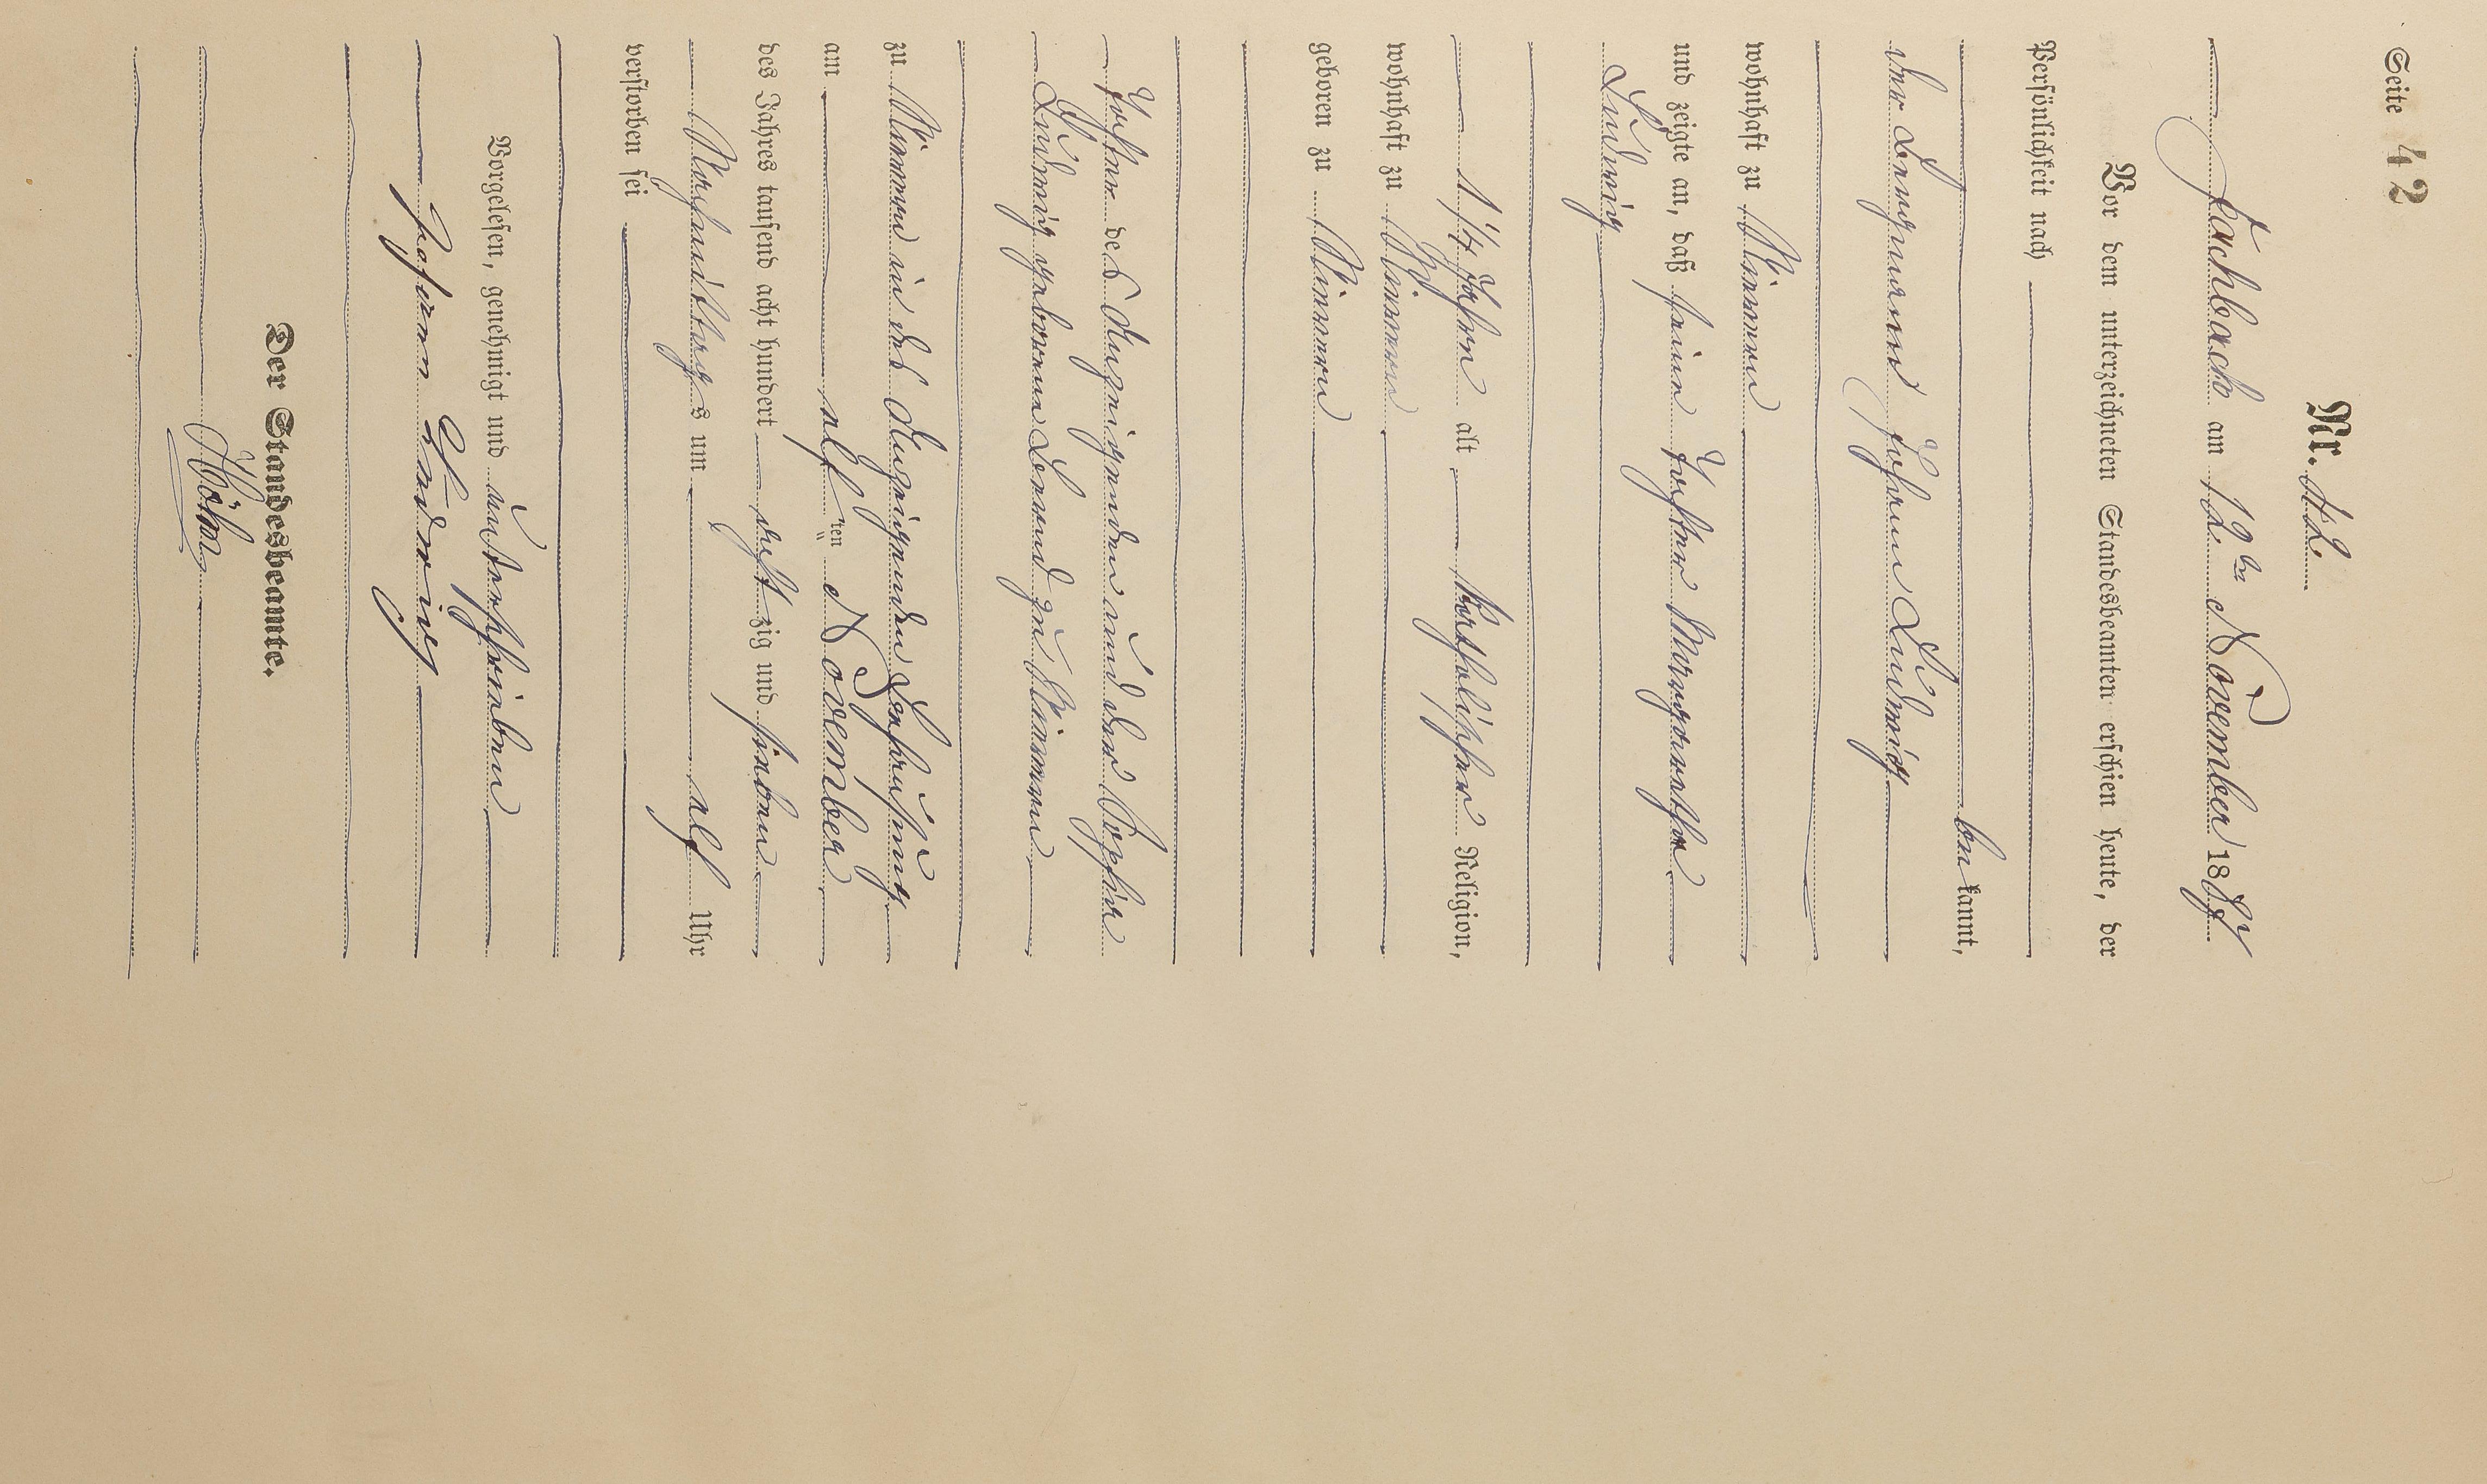 Seite 42
Nr. 42.
Fachbach am 12ten November 1887
Vor dem unterzeichneten Standesbeamten erschien heute, der
Persönlichkeit nach
bekannt,
der Bergmann Johann Ludwig
wohnhaft zu Nievern
und zeigte an, daß seine Tochter Margaretha
Ludwig
1 1/4 Jahre alt katholischer Religion,
wohnhaft zu Nievern
geboren zu Nievern
Tochter des Anzeigenden und der Sophia
Ludwig geborene zu Nievern
zu Nievern in des Anzeigenden Behausung
am elften November
des Jahres tausend acht hundert achtzig und sieben
Nachmittags um elf Uhr
verstorben sei
Vorgelesen, genehmigt und unterschrieben
Johann Ludwig
Der Standesbeamte.
Höhn